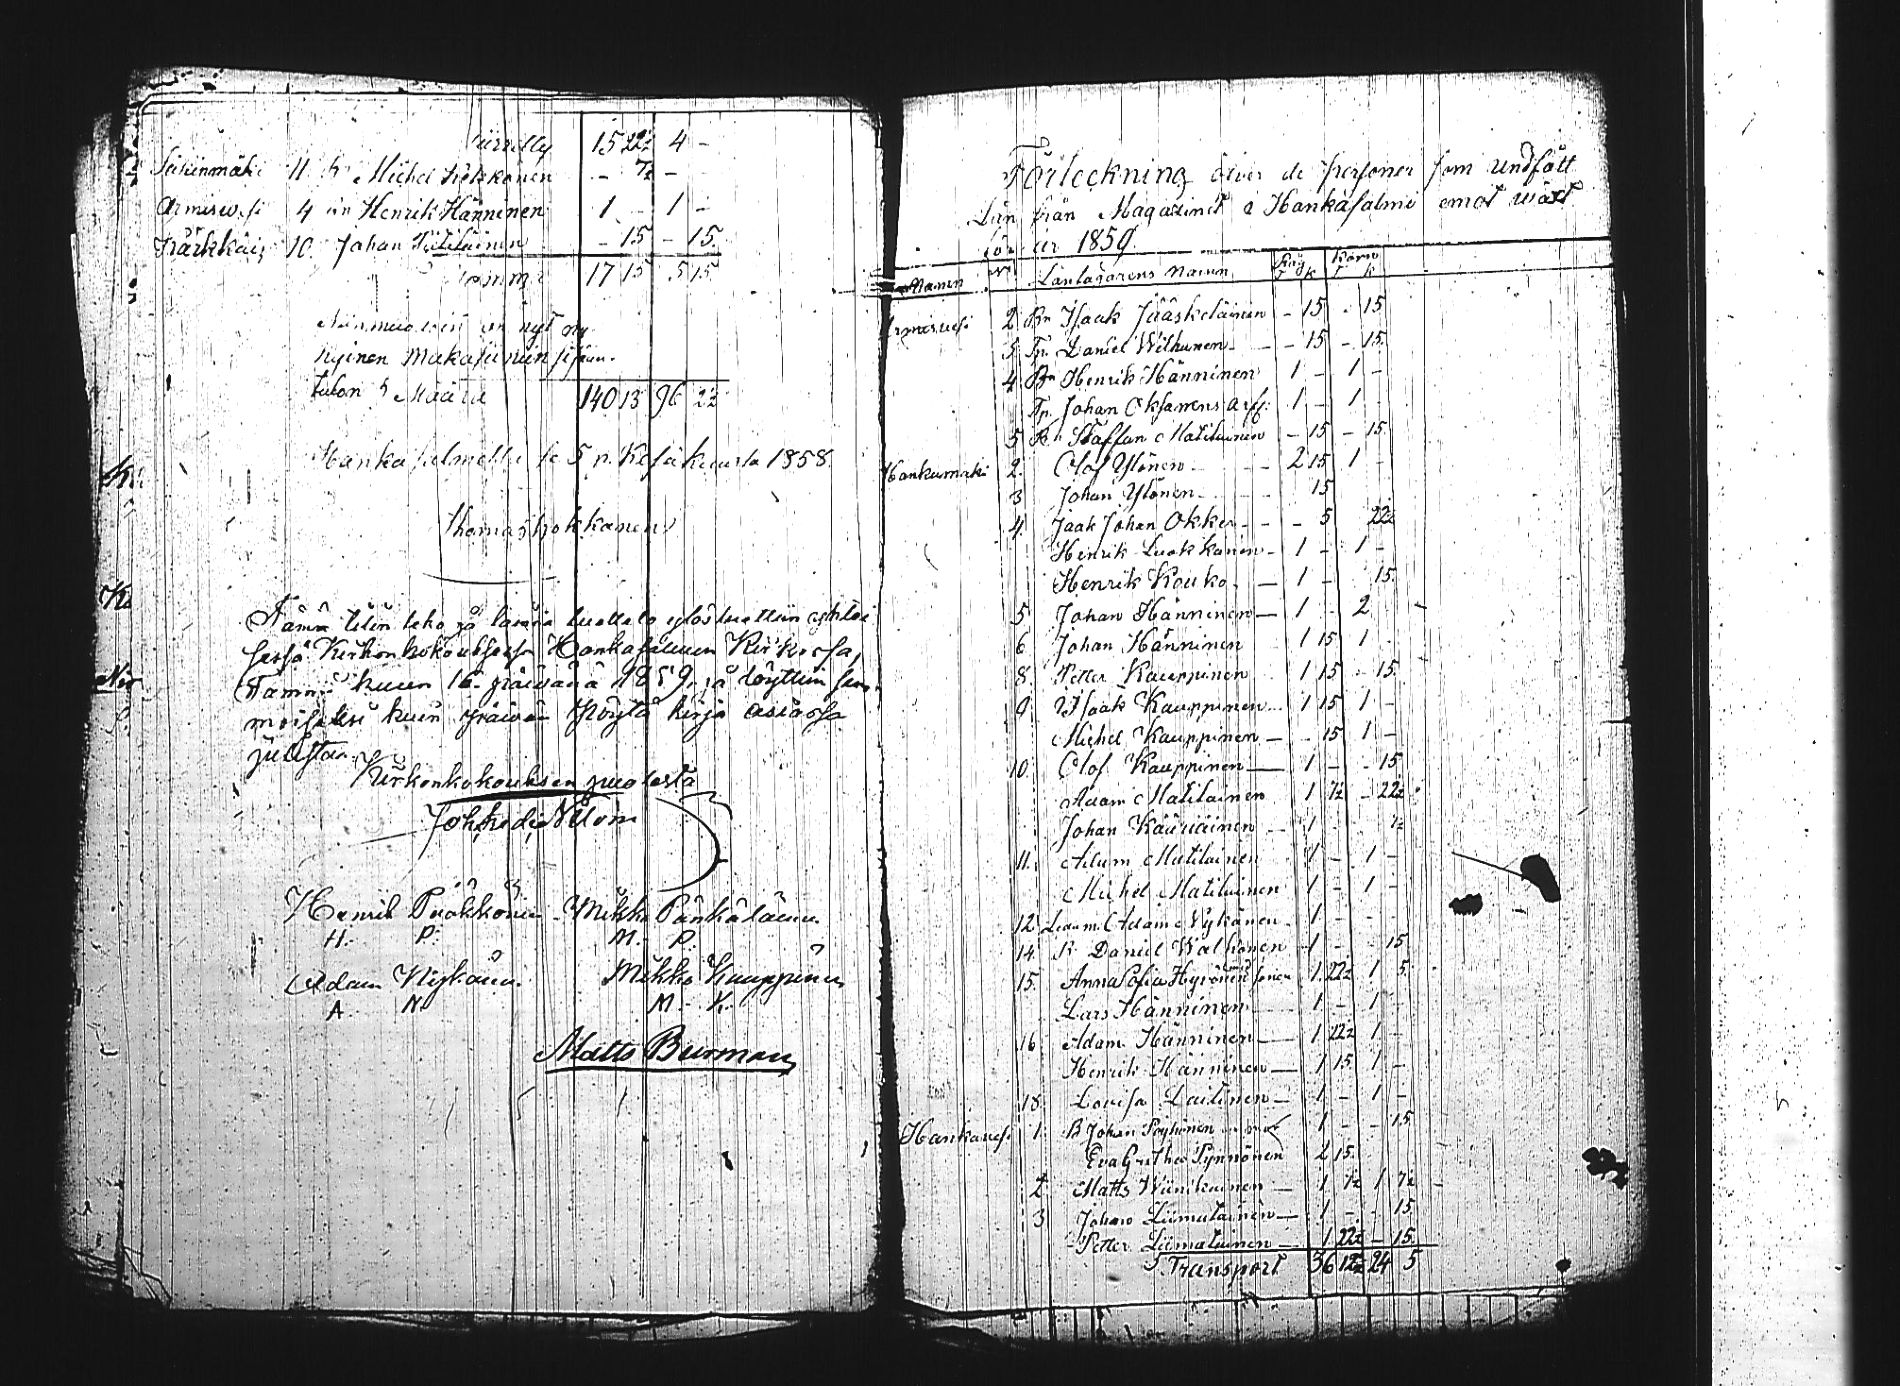 Siirretty 15 22½ 4 -
Säkinmäki 11 Michel Kokkonen - 7½ -
Armisvesi 4 Henrik Hänninen 1 - 1 -
Kärkkäis 10 Johan - 15 - 15
Summa 17 15 5 15
on nyt
Makasiinin
tulon Määrä 140 13 96 2½
Hankasalmella se 5 p. Kesäkuusta 1858
Thomas Kokkanen
Tämä tilin teko ja
Kirkonkokouksessa Hankasalmen Kirkossa,
Tammi kuun 16 päivänä 1859 ja löyttiin
kuin päivän Pöytä kirja asiassa
julistaa.
Kirkonkokouksen puolesta
Joh. Fredr. Nilom
Henrik Pääkkönen Mikko Pänkäläinen
H. P. M. P.
Adam Nykänen Mikko Kauppinen
A. N. M. K.
Matts Burman
Förteckning öfver de personer som undfått
Lån från Magazinet i Hankasalmi emot växt
för år 1859.
Namn No Låntagarens Namn Råg T K Korn T K
Armisvesi 2 Bn Isaak Jääskeläinen - 15 - 15
5 Tp. Daniel Wilhunen - 15 - 15
4 Bn Henrik Hänninen 1 - 1 -
Tp. Johan Oksanens arf: 1 - 1 -
5 Bn Staffan Matilainen - 15 - 15
Hankamäki 2. Olof Ylönen 2 15 1 -
3 Johan Ylönen 15
4. Isaak Johan Okker - 5 22½
Henrik Luokkanen 1 - 1 -
Henrik Kouko 1 - 15
5 Johan Hänninen 1 - 2 -
6 Johan Hänninen 1 15 1 -
8. Petter Kauppinen 1 15 - 15
9 Isaak Kauppinen 1 15 1 -
Michel Kauppinen - 15 1 -
10. Olof Kauppinen 1 - - 15
Adam Matilainen 1 7½ - 22½
Johan Kääriäinen 1 - - 7½
11. Adam Matilainen 1 - 1 -
Michel Matilainen 1 - 1 -
12 Adam Nykänen 1 - - -
14. Daniel Walkonen 1 - - 15
15. Anna Sofia Hyvönen 1 22½ 1 5
Lars Hänninen 1 - 1 -
16 Adam Hänninen 1 22½ 1 -
Henrik Hänninen 1 15 1 -
18. Lovisa Laitinen 1 - 1 -
Hankavesi 1. B Johan Pöyhönen 1 - - 15
Eva Gretha Pynnönen 2 15
2 Matts Wiinikainen 1 7½ 1 7½
3 Johan Liimatainen 1 - - 15
Petter Liimatainen 1 22½ - 15
Transport 36 12½ 24 5